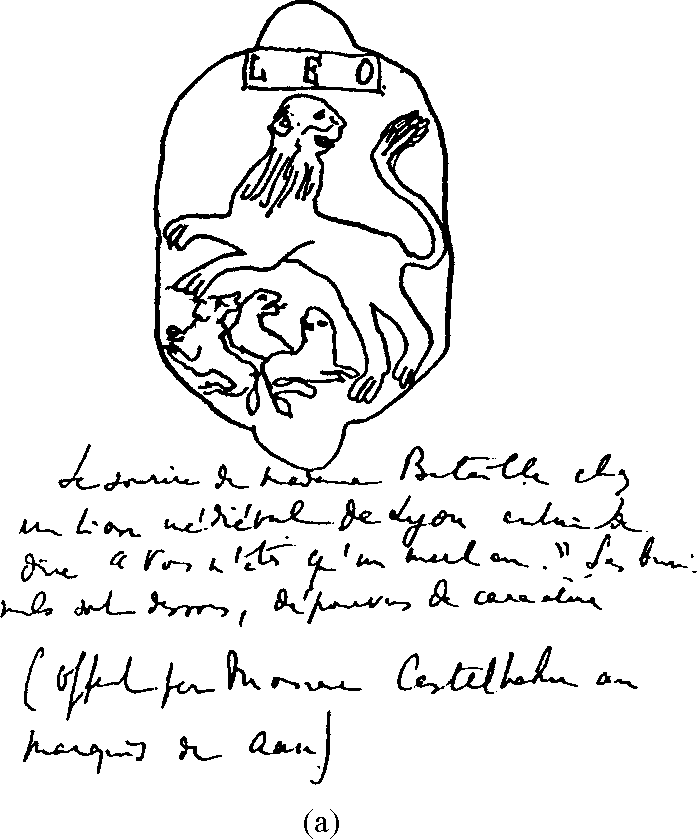 LEO
Le sourire de madame Bataille chez
un lion médiéval de Lyon entrain de
dire " Vous n'êtes qu'un
sont dessous, dépourvus de caractère
(Offert par Monsieur au
marquis de
(a)